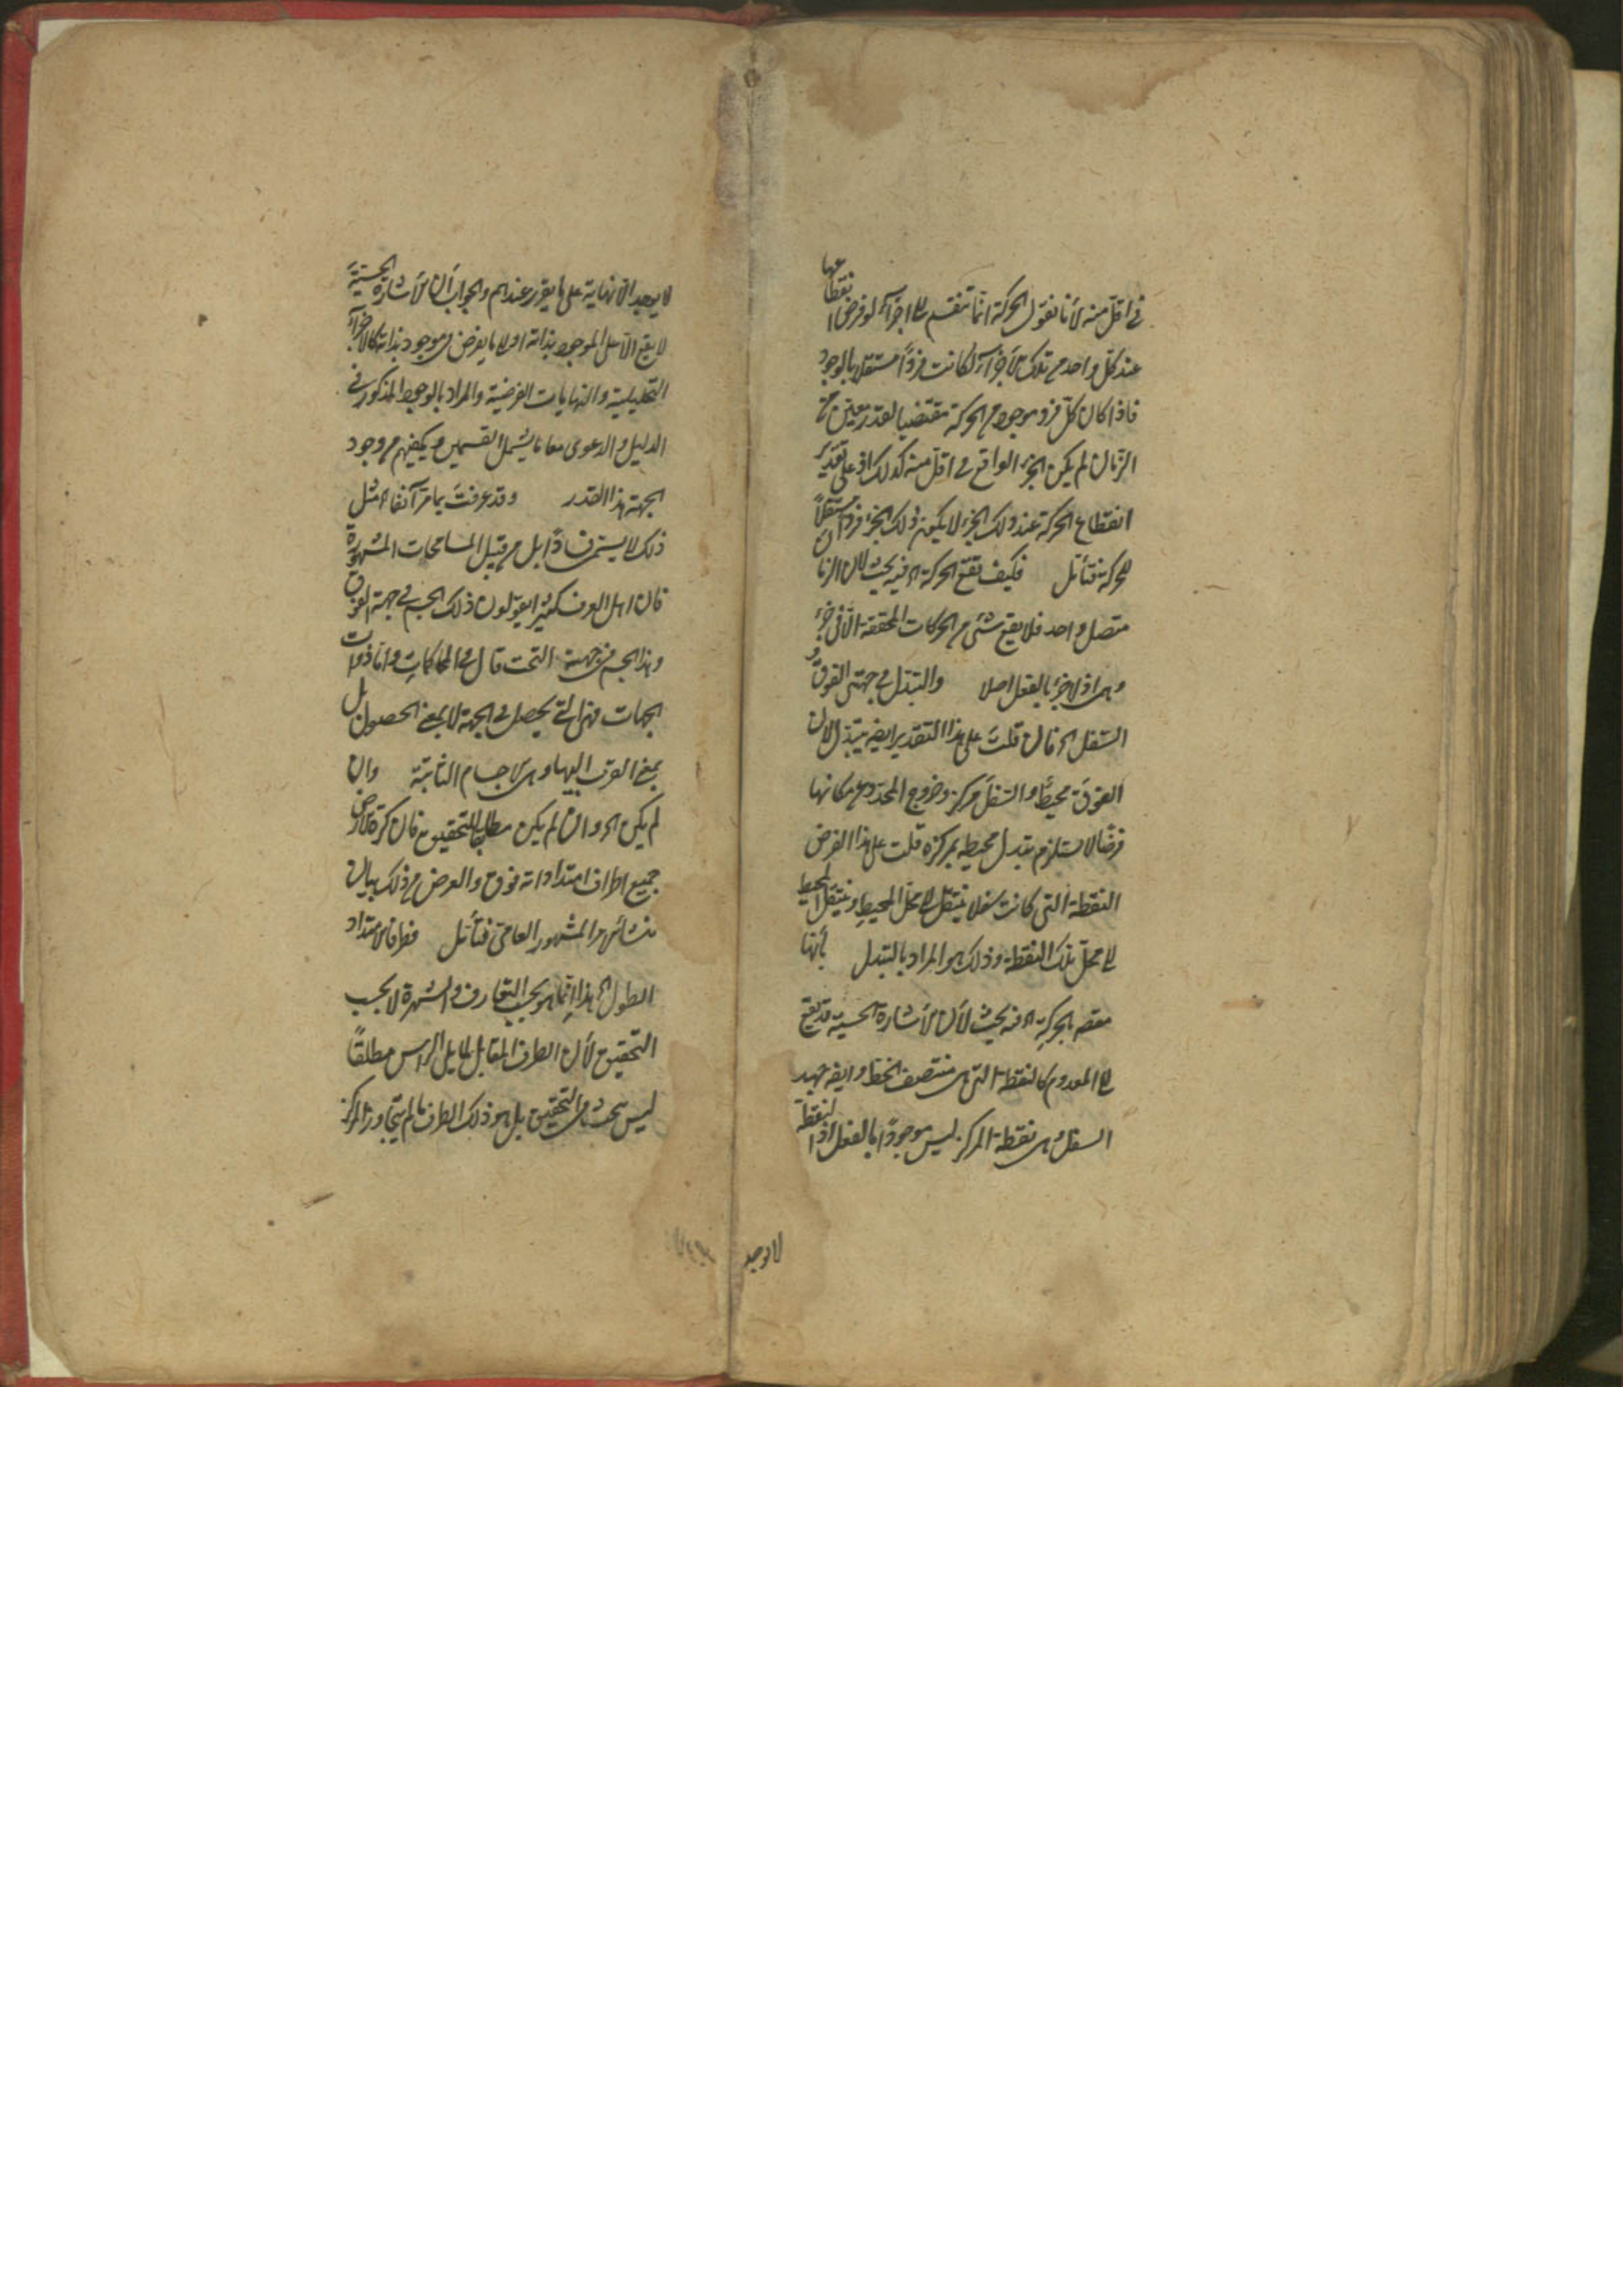 في اقل منه لأنا نقول الحركة انما تنقسم الى اجزاء لو فرض انقطاعها
عند كل واحد من تلك الاجزاء لكانت فردًا مستقلا بالوجود
فاذا كان كل فرد موجود من الحركة مقتضيا لقدر معين من
الزمان لم يكن الجزء الواقع في اقل منه كذلك اذ على تقدير
انقطاع الحركة عند ذلك الجزء لا يكون ذلك الجزء فردا مستقلاً
للحركة فتأمل فكيف تقع الحركة اه فيه بحث لان الزمان
متصل واحد فلا يقع شئ من الحركات المحققة الا في جزء
وهى اذ لا جزء بالفعل اصلا والتبدل في جهتى الفوق و
السفل اه فان قلت على هذا التقدير ايضا يتبدل لان
الفوق محيط والسفل مركز وخروج المحدد عن مكانها
فرضًا لا يستلزم تبدل محيطه بمركزه قلت على هذا الفرض
النقطة التى كانت سفلا ينتقل الى محل المحيط وينتقل المحيط
الى محل تلك النقطة وذلك هو المراد بالتبدل بأنها
مقصد الحركة اه فيه بحث لأن الأشارة الحسية قد يقع
الى المعدوم كالنقطة التى هى منتصف الخط وايضا جهة
السفل وهى نقطة المركز ليس موجودًا بالفعل اذ النقطة
لا توجد
لا توجد الا نهاية على ما تقرر عندهم والجواب أن الأشارة الحسية
لا يقع الا على الموجود بذاته او لا ما يفرض فى موجود بذاته كالاجزآء
التحليلية والنهايات الفرضية والمراد بالوجود المذكور في
الدليل والدعوى معا ما يشمل القسمين ويكفيهم من وجود
الجهة هذا القدر وقد عرفت بما مر آنفا ان مثل
ذلك لا يسمى فسادًا بل من قبيل المسامحات المشهورة
فان اهل العرف كثيرا يقولون ذلك الجسم في جهة الفوق
وهذا الجسم في جهة التحت قال في المحاكمات واما ذوات
الجهات فهى التى يحصل في الجهة لا بمعنى الحصول بل
بمعنى القرب اليها وهى الاجسام الثابتة وان
لم يكن اه وان لم يكن مطابقا للتحقيق فان كرة الارض
جميع اطراف امتداداته فوق والغرض من ذلك بيان
منشائهم المشهور العامى فتأمل فطرفا الامتداد
الطول اه هذا انما هو بحسب التعارف والشهرة لا بحسب
التحقيق لأن الطرف المقابل لما يلى الراس مطلقًا
ليس بتحت في التحقيق بل هو ذلك الطرف ما لم يتجاوز المركز